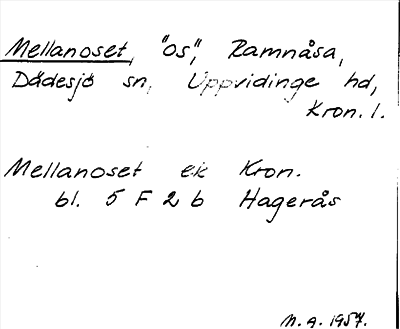 Mellanoset, "os", Ramnåsa,
Dädesjö sn, Uppvidinge hd,
Kron. l.
Mellanoset ek Kron.
bl. 5 F 2 b Hagerås
M. A. 1957.